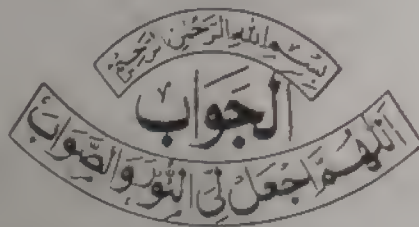 بِسْمِ اللهِ الرَّحْمٰنِ الرَّحِيْمِ
الجَوَابْ
اَللّٰهُمَّ اجْعَلْ لِيَ النُّوْرَ وَالصَّوَابَ